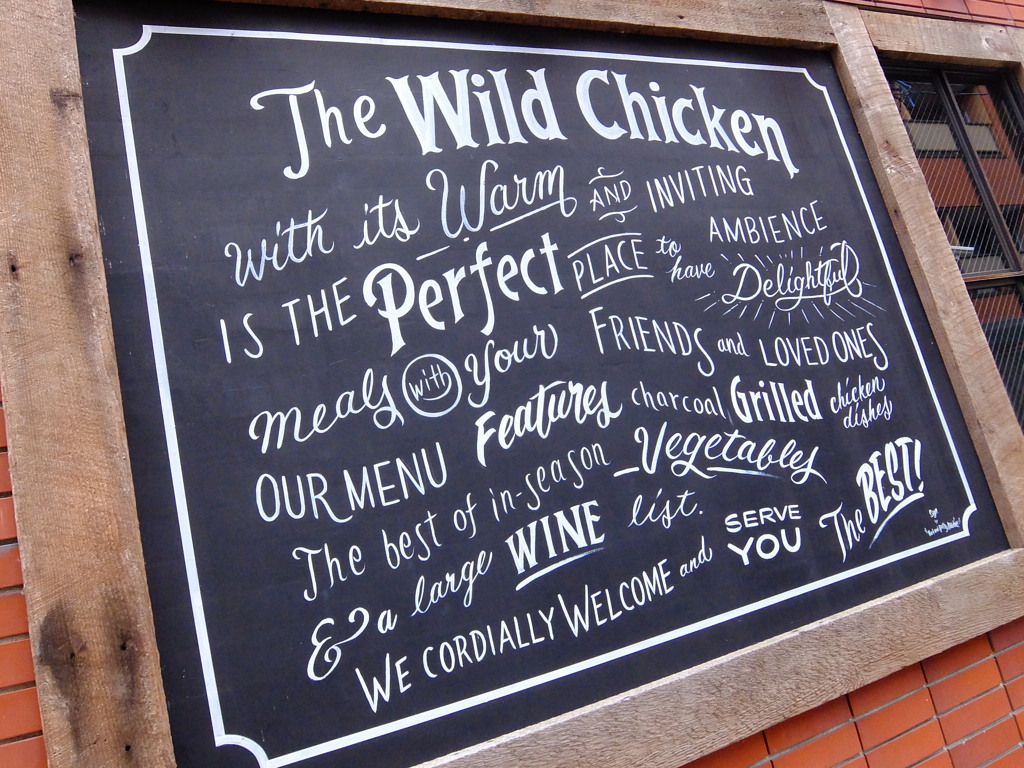 The Wild Chicken
with its Warm AND INVITING
AMBIENCE
IS THE Perfect PLACE to have Delightful
meals with your FRIENDS and LOVED ONES
OUR MENU Features charcoal Grilled chicken dishes
The best of in-season Vegetables
& a large WINE list.
WE CORDIALLY WELCOME and SERVE YOU The BEST!